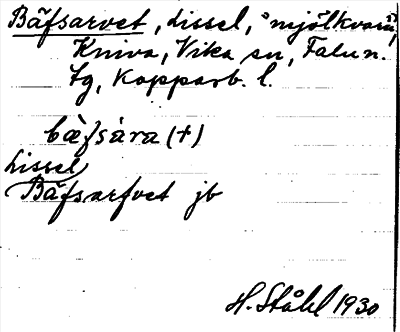 Bäfsarvet, Lissel, "mjölkvarn",
Kniva, Vika sn, Falu n.
fg, Kopparb. l.
bæ̀fsàra (+)
Lissel
Bäfsarfvet jb
H. Ståhl 1930